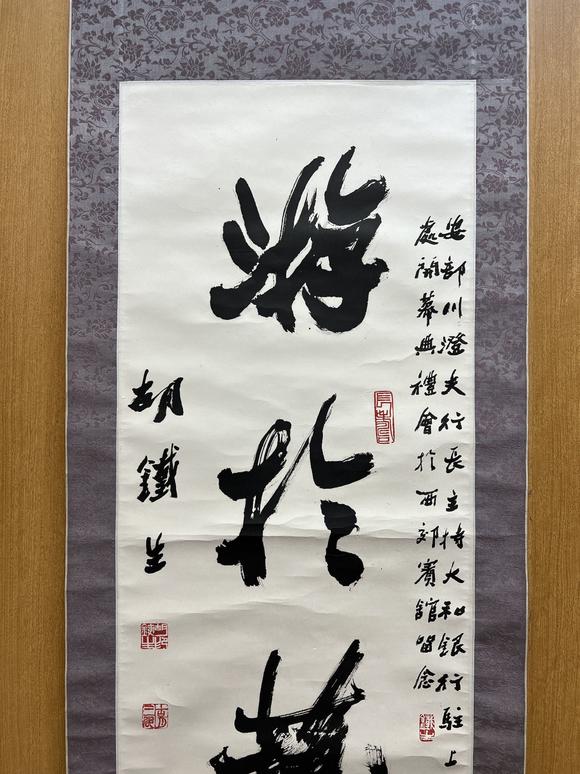 安部川澄夫行長主持大和銀行駐上
處開幕典禮會於西郊賓館留念
游於
胡鐵生